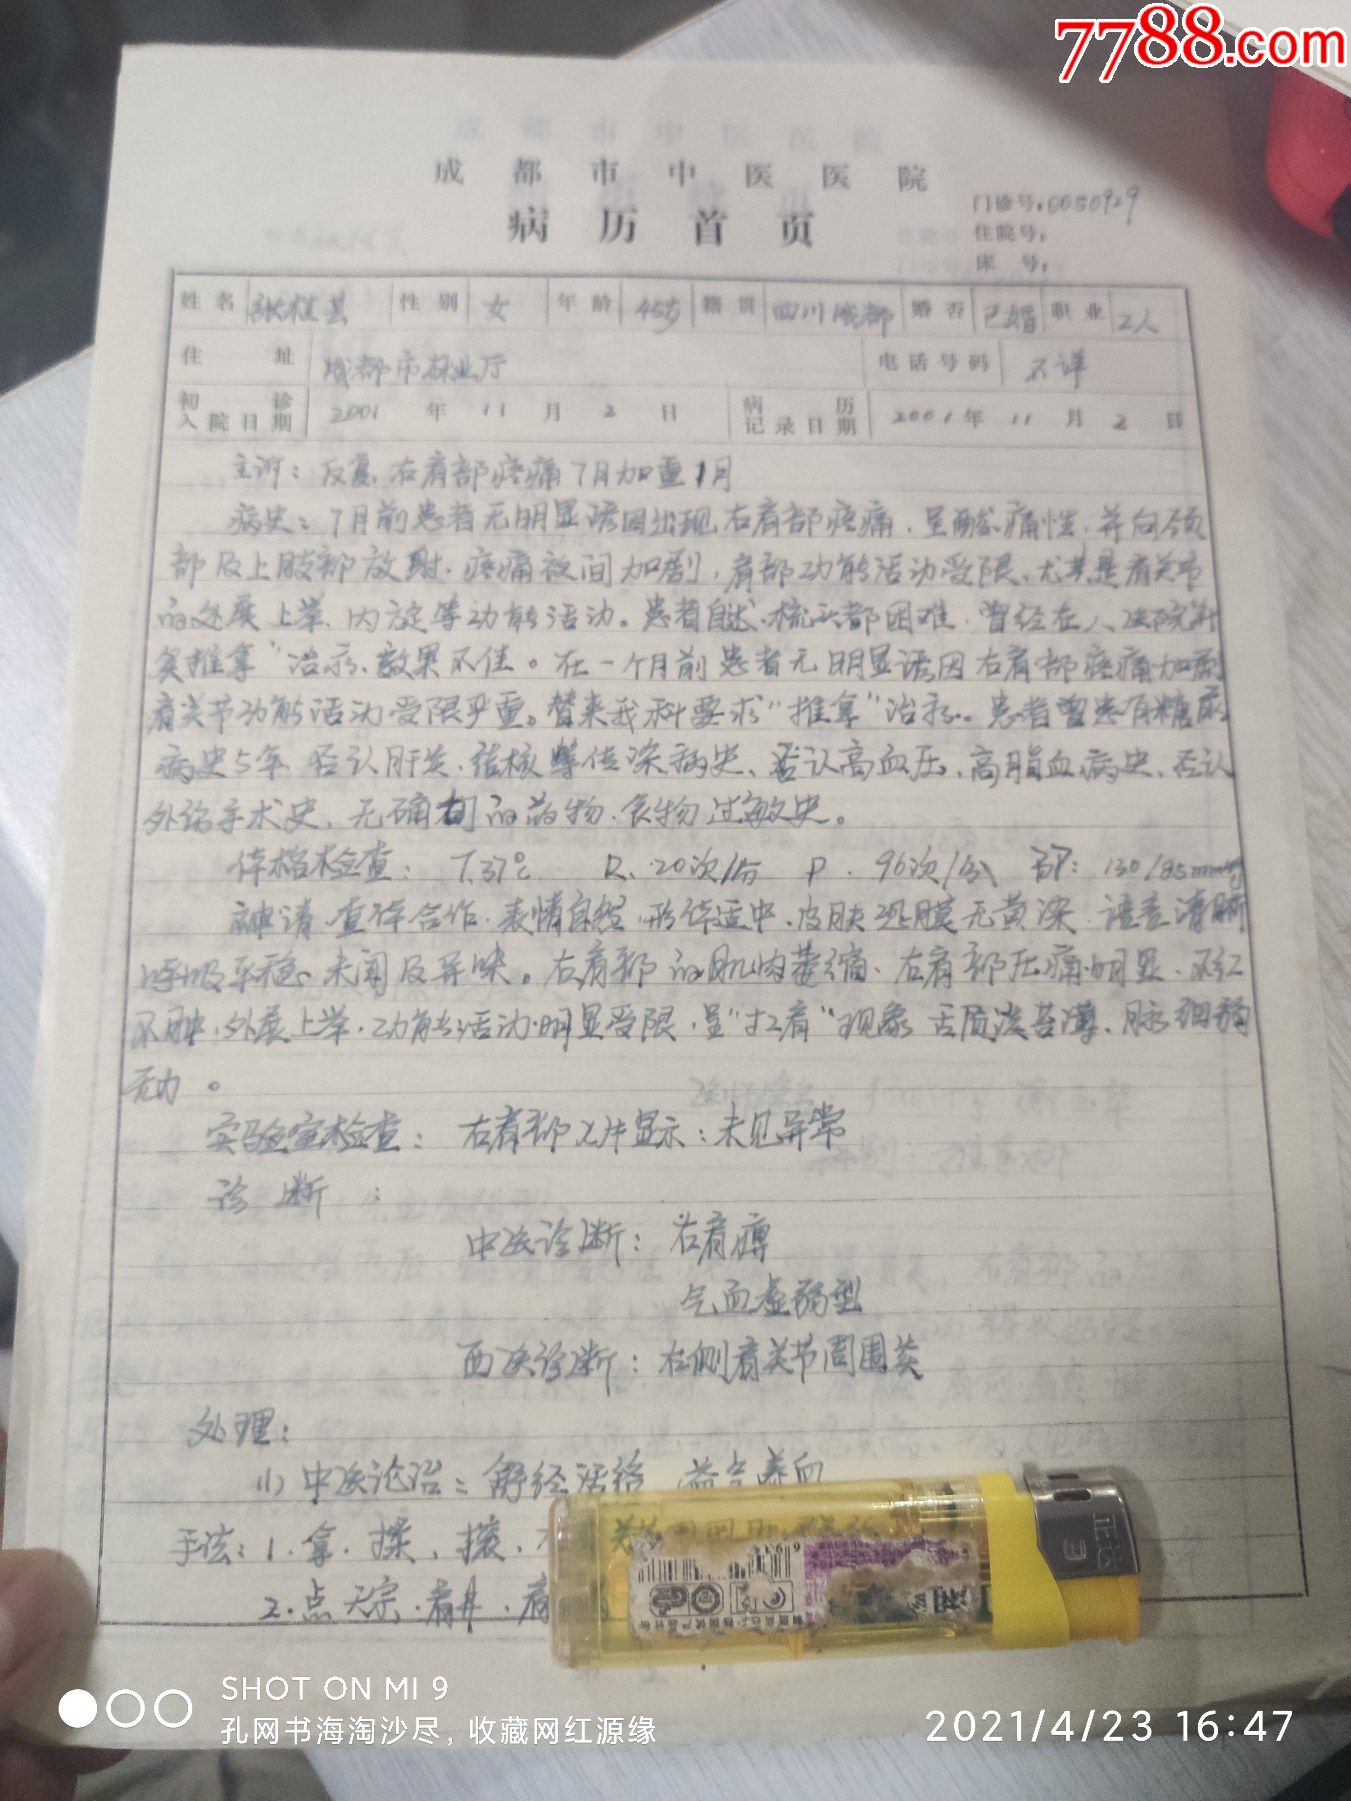 7788.com
成都市中医医院
病历首页
门诊号:0050929
住院号:
床号:
姓名 张桂芸 性别 女 年龄 45岁 籍贯 四川成都 婚否 已婚 职业 工人
住址 成都市林业厅 电话号码 不详
初诊入院日期 2001年11月2日 病历记录日期 2001年11月2日
主诉:反复右肩部疼痛7月加重1月
病史:7月前患者无明显诱因出现右肩部疼痛,呈酸痛性,并向颈
部及上肢部放射.疼痛夜间加剧,肩部功能活动受限、尤其是肩关节
的外展上举、内旋等动能活动。患者自述、梳头都困难.曾经在人、医院针
灸推拿"治疗、效果不佳。在一个月前患者无明显诱因右肩部疼痛加剧
肩关节功能活动受限严重。替来我科要求"推拿"治疗。患者曾患有糖尿
病史5年 否认肝炎、结核等传染病史、否认高血压、高脂血病史、否认
外伤手术史,无确切的药物、食物过敏史。
体格检查: T.37℃ R.20次/分 P.96次/分 BP:130/85mmHg
神清 查体合作.表情自然,形体适中、皮肤巩膜无黄染 语言清晰
呼吸平稳、未闻及异味。右肩部的肌肉萎缩、右肩部压痛明显、不红
不肿,外展上举,功能活动明显受限,呈"扛肩"现象 舌质淡苔薄、脉细弱
无力。
实验室检查: 右肩部X片显示:未见异常
诊断:
中医诊断:右肩痹
气血虚弱型
西医诊断:右侧肩关节周围炎
处理:
(1)中医论治:舒经活络 益气养血
手法:1.拿.揉、滚、
2.点天宗.肩井.肩
正达
SHOT ON MI 9
孔网书海淘沙尽,收藏网红源缘
2021/4/23 16:47